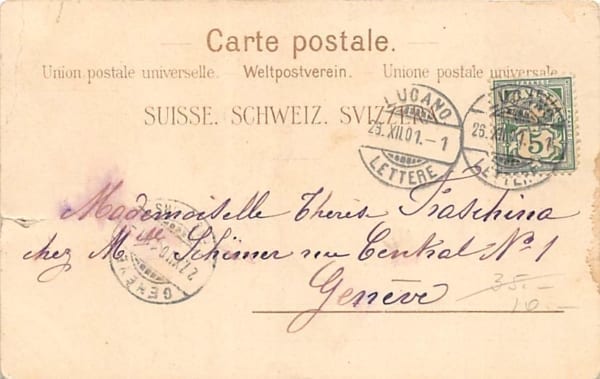 Carte postale.
Union postale universelle. Weltpostverein. Unione postale universale
SUISSE. SCHWEIZ. SVIZZERA
LUGANO
26.XII.01.-1
LETTERE
LUGANO
26.XII.01.-1
LETTERE
5
Mademoiselle Therès Fraschina
chez Mlle Schirmer rue Central No 1
Genève
GENÈVE
27.XII.01
35.-
10.-